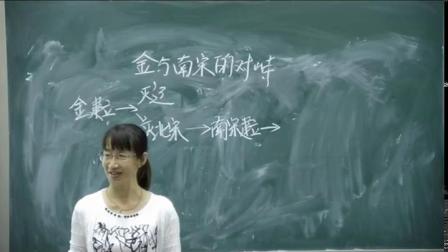 金与南宋的对峙
灭辽
金建立→
灭北宋→南宋建立→